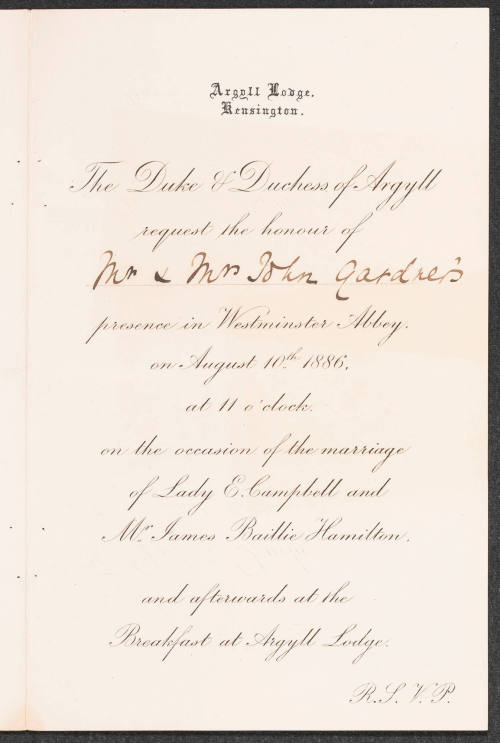 Argyll Lodge.
Kensington.
The Duke & Duchess of Argyll
request the honour of
Mr & Mrs John Gardner's
presence in Westminster Abbey.
on August 10th 1886,
at 11 o'clock.
on the occasion of the marriage
of Lady E. Campbell and
Mr. James Baillie Hamilton.
and afterwards at the
Breakfast at Argyll Lodge.
R.S.V.P.